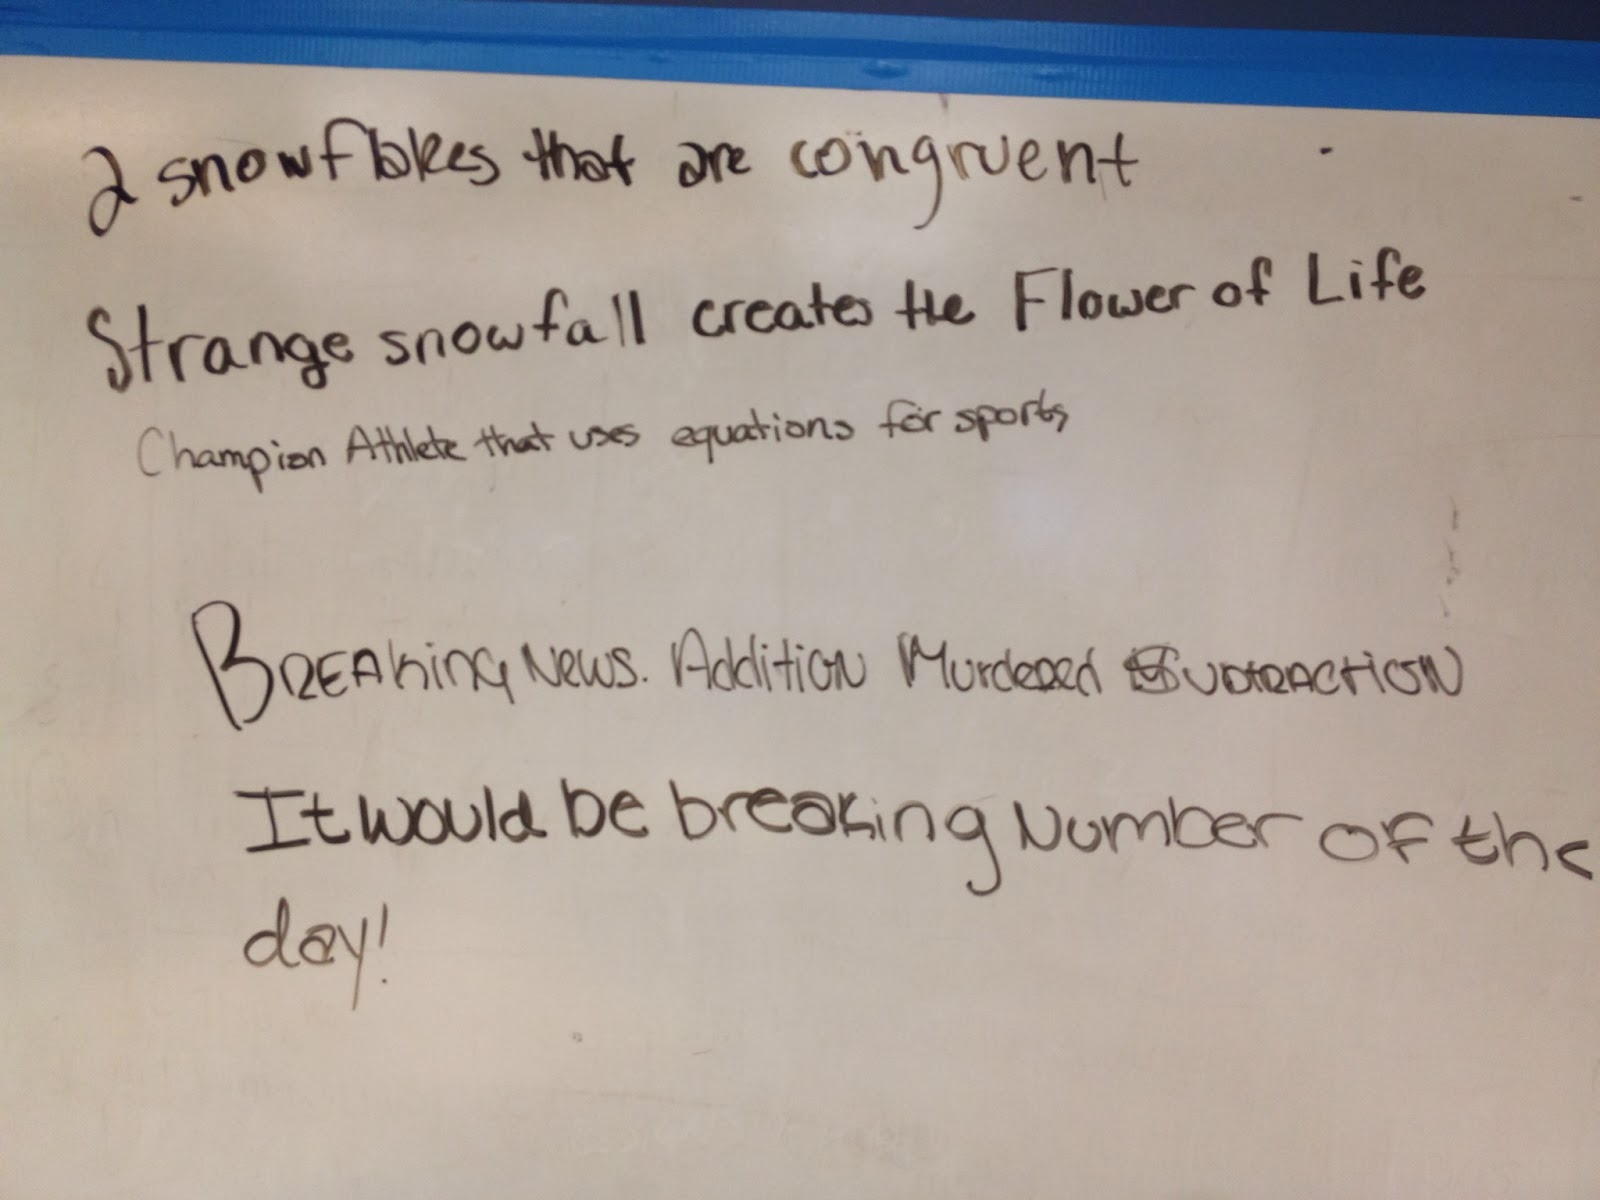 2 snowflakes that are congruent
Strange snowfall creates the Flower of Life
Champion Athlete that uses equations for sports
BREAKinG NEWS. Addition Murdered SUbTRACTION
It would be breaking Number of the
day!